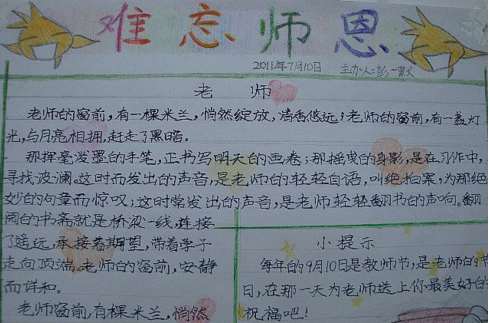 难忘师恩
2011年7月10日 主办人:彭一
老师
老师的窗前,有一棵米兰,悄然绽放,清香悠远;老师的窗前,有一盏灯
光,与月亮相拥,赶走了黑暗。
那挥毫泼墨的手笔,正书写明天的画卷;那摇曳的身影,是在习作中,
寻找波澜。这时而发出的声音,是老师的轻轻自语,叫绝拍案,为那绝
妙的句章而惊叹;这时常发出的声音,是老师轻轻翻书的声响。翻
阅的书斋就是桥梁一线,连接
了遥远,承接着期望,带着学子
走向顶端。老师的窗前,安静
而详和。
老师窗前,有棵米兰,悄然
小提示
每年的9月10日是教师节,是老师的节
日,在那一天为老师送上你最美好的
祝福吧!